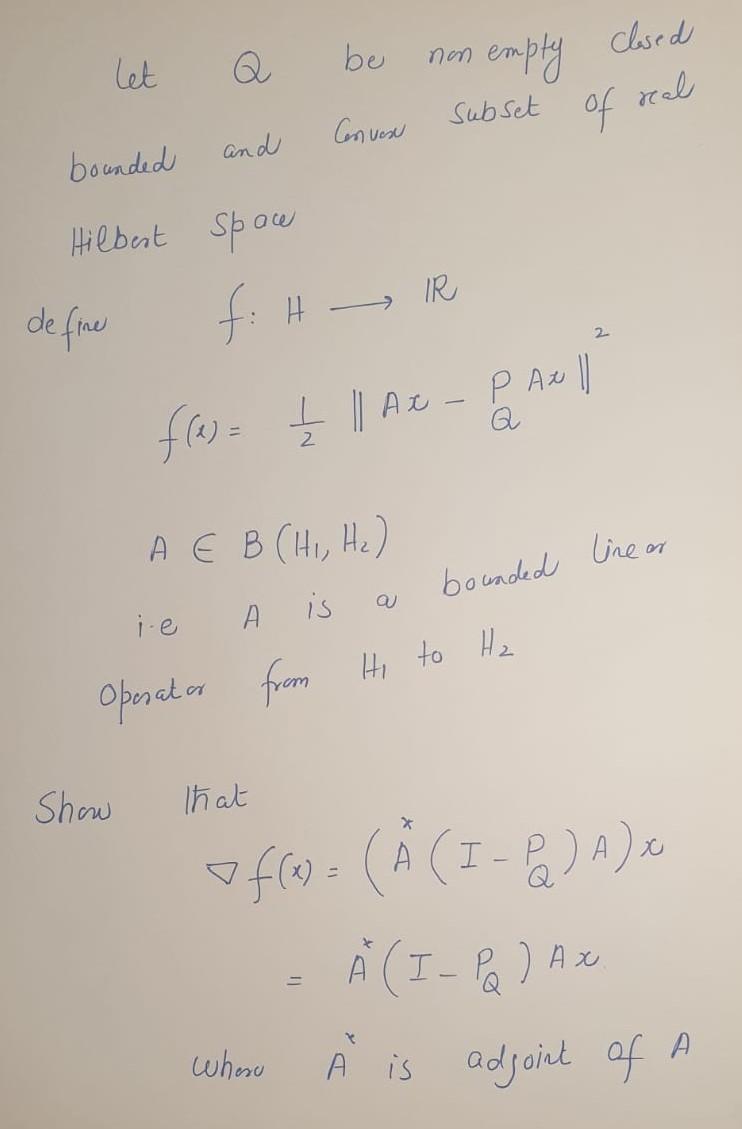 Let Q be non empty closed
bounded and Convex Subset of real
Hilbert Space
define f: H ⟶ ℝ
f(x) = 1/2 ‖ Ax − P_Q Ax ‖²
A ∈ B(H₁, H₂)
i.e A is a bounded linear
Operator from H₁ to H₂
Show that
∇f(x) = (A*(I − P_Q)A)x
= A*(I − P_Q)Ax
where A* is adjoint of A